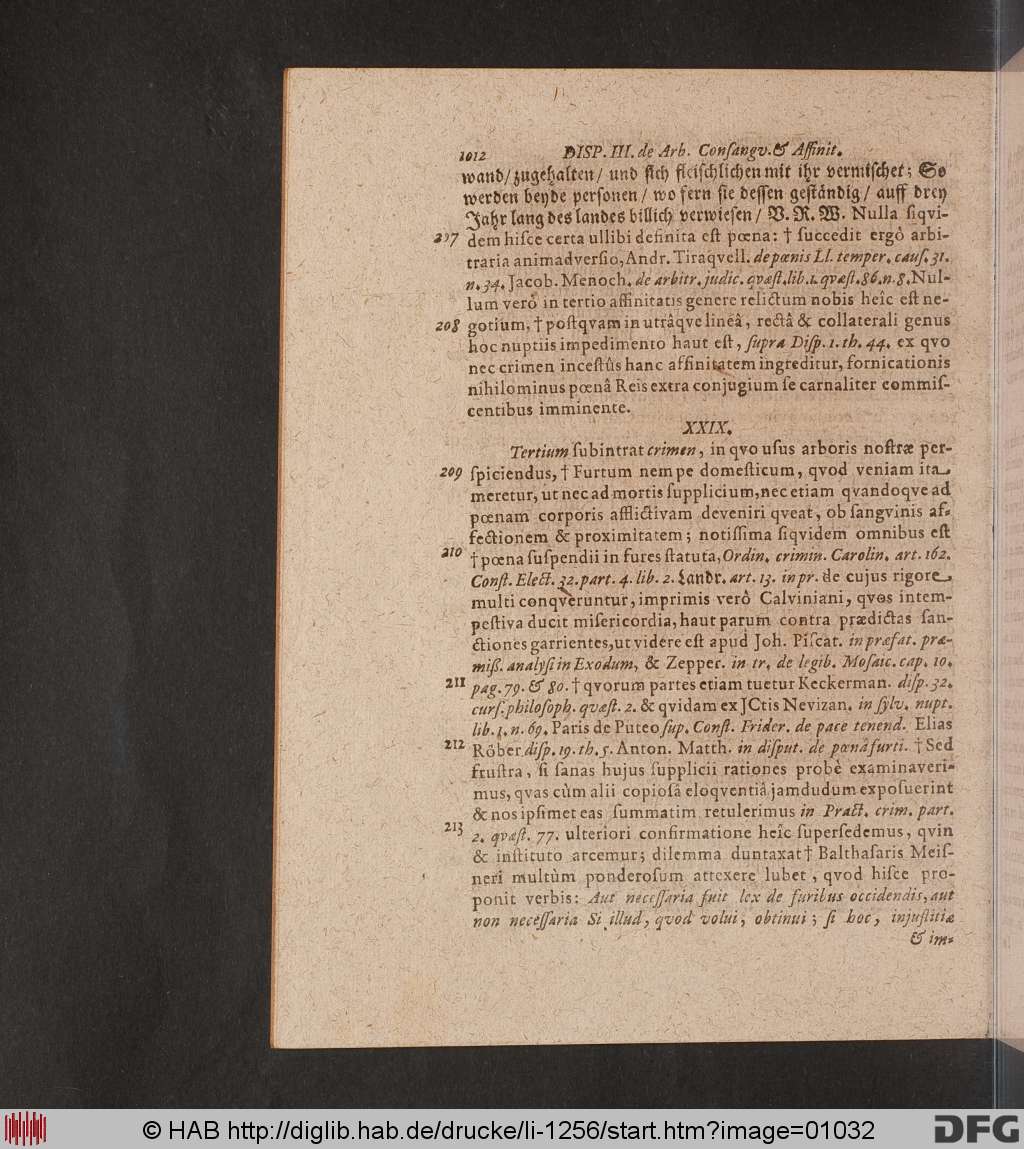 1012 DISP. III. de Arb. Conſangv. & Affinit.
wand/ zugehalten/ und ſich fleiſchlichen mit ihr vermiſchet; So
werden beyde perſonen/ wo fern ſie deſſen geſtändig/ auff drey
Jahr lang des landes billich verwieſen/ V. R. W. Nulla ſiqvi-
207 dem hiſce certa ullibi definita eſt pœna: † ſuccedit ergò arbi-
traria animadverſio, Andr. Tiraqvell. de pœnis Ll. temper. cauſ. 31.
n. 34. Jacob. Menoch. de arbitr. judic. qvæſt. lib. 1. qvæſt. 86. n. 8. Nul-
lum verò in tertio affinitatis genere relictum nobis heîc eſt ne-
208 gotium, † poſtqvam in utrâqve lineâ, rectâ & collaterali genus
hoc nuptiis impedimento haut eſt, ſupra Diſp. 1. th. 44. ex qvo
nec crimen inceſtûs hanc affinitatem ingreditur, fornicationis
nihilominus pœnâ Reis extra conjugium ſe carnaliter commiſ-
centibus imminente.
XXIX.
Tertium ſubintrat crimen, in qvo uſus arboris noſtræ per-
209 ſpiciendus, † Furtum nempe domeſticum, qvod veniam ita
meretur, ut nec ad mortis ſupplicium, nec etiam qvandoqve ad
pœnam corporis afflictivam deveniri qveat, ob ſangvinis af-
fectionem & proximitatem; notiſſima ſiqvidem omnibus eſt
210 † pœna ſuſpendii in fures ſtatuta, Ordin. crimin. Carolin. art. 162.
Conſt. Elect. 32. part. 4. lib. 2. Landr. art. 13. in pr. de cujus rigore
multi conqveruntur, imprimis verò Calviniani, qvos intem-
peſtiva ducit miſericordia, haut parum contra prædictas ſan-
ctiones garrientes, ut videre eſt apud Joh. Piſcat. in præfat. præ-
miß. analyſi in Exodum, & Zepper. in tr. de legib. Moſaic. cap. 10.
211 pag. 79. & 80. † qvorum partes etiam tuetur Keckerman. diſp. 32.
curſ. philoſoph. qvæſt. 2. & qvidam ex JCtis Nevizan. in ſylv. nupt.
lib. 1. n. 69. Paris de Puteo ſup. Conſt. Frider. de pace tenend. Elias
212 Röber diſp. 19. th. 5. Anton. Matth. in diſput. de pœnâ furti. † Sed
fruſtra, ſi ſanas hujus ſupplicii rationes probè examinaveri-
mus, qvas cùm alii copioſâ eloqventiâ jamdudum expoſuerint
& nos ipſimet eas ſummatim retulerimus in Pract. crim. part.
213 2. qvæſt. 77. ulteriori confirmatione heîc ſuperſedemus, qvin
& inſtituto arcemur; dilemma duntaxat † Balthaſaris Meiſ-
neri multùm ponderoſum attexere lubet, qvod hiſce pro-
ponit verbis: Aut neceſſaria fuit lex de furibus occidendis, aut
non neceſſaria Si illud, qvod volui, obtinui; ſi hoc, injuſtitiæ
& im-
© HAB http://diglib.hab.de/drucke/li-1256/start.htm?image=01032
DFG